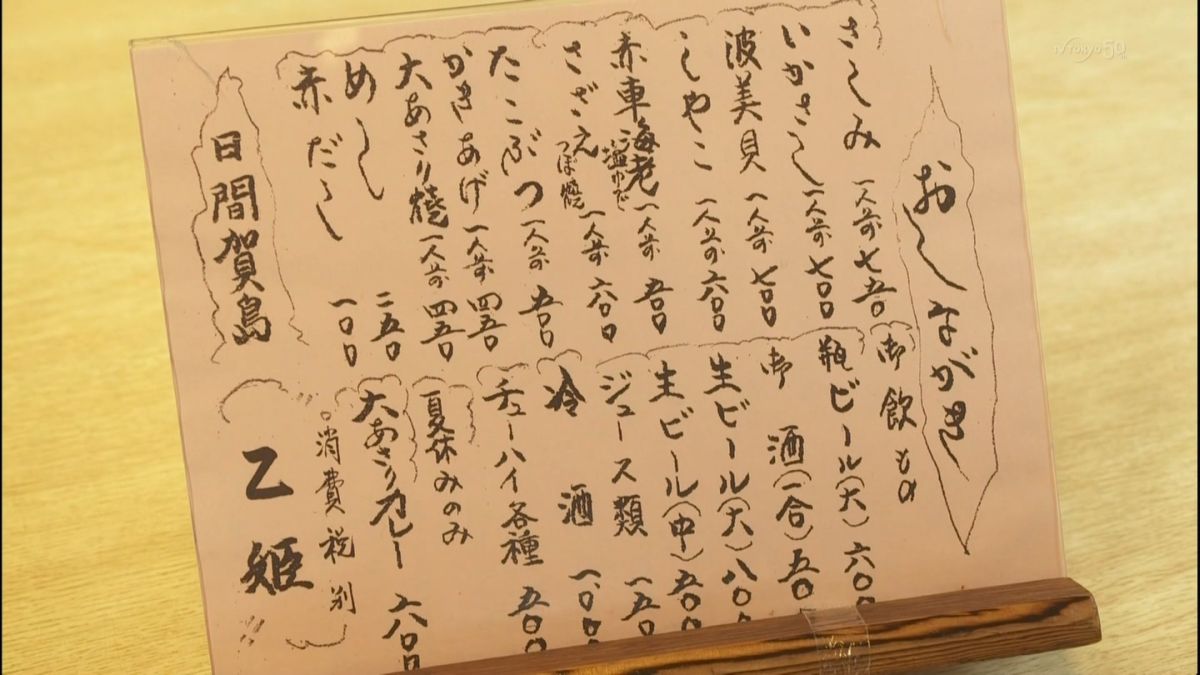 おしながき
さしみ 一人前 七五〇
いかさし 一人前 七〇〇
波美貝 一人前 七〇〇
しゃこ 一人前 六〇〇
赤車海老 塩ゆで 一人前 五〇〇
さざえ つぼ焼 一人前 六〇〇
たこぶつ 一人前 五〇〇
かきあげ 一人前 四五〇
大あさり焼 一人前 四五〇
めし 二五〇
赤だし 一〇〇
御飲もの
瓶ビール(大) 六〇〇
御酒(一合) 五〇〇
生ビール(大) 八〇〇
生ビール(中) 五〇〇
ジュース類 一五〇
冷酒 一、〇〇〇
チューハイ各種 五〇〇
夏休みのみ
大あさりカレー 六八〇
○消費税別
日間賀島
乙姫
TV TOKYO 50